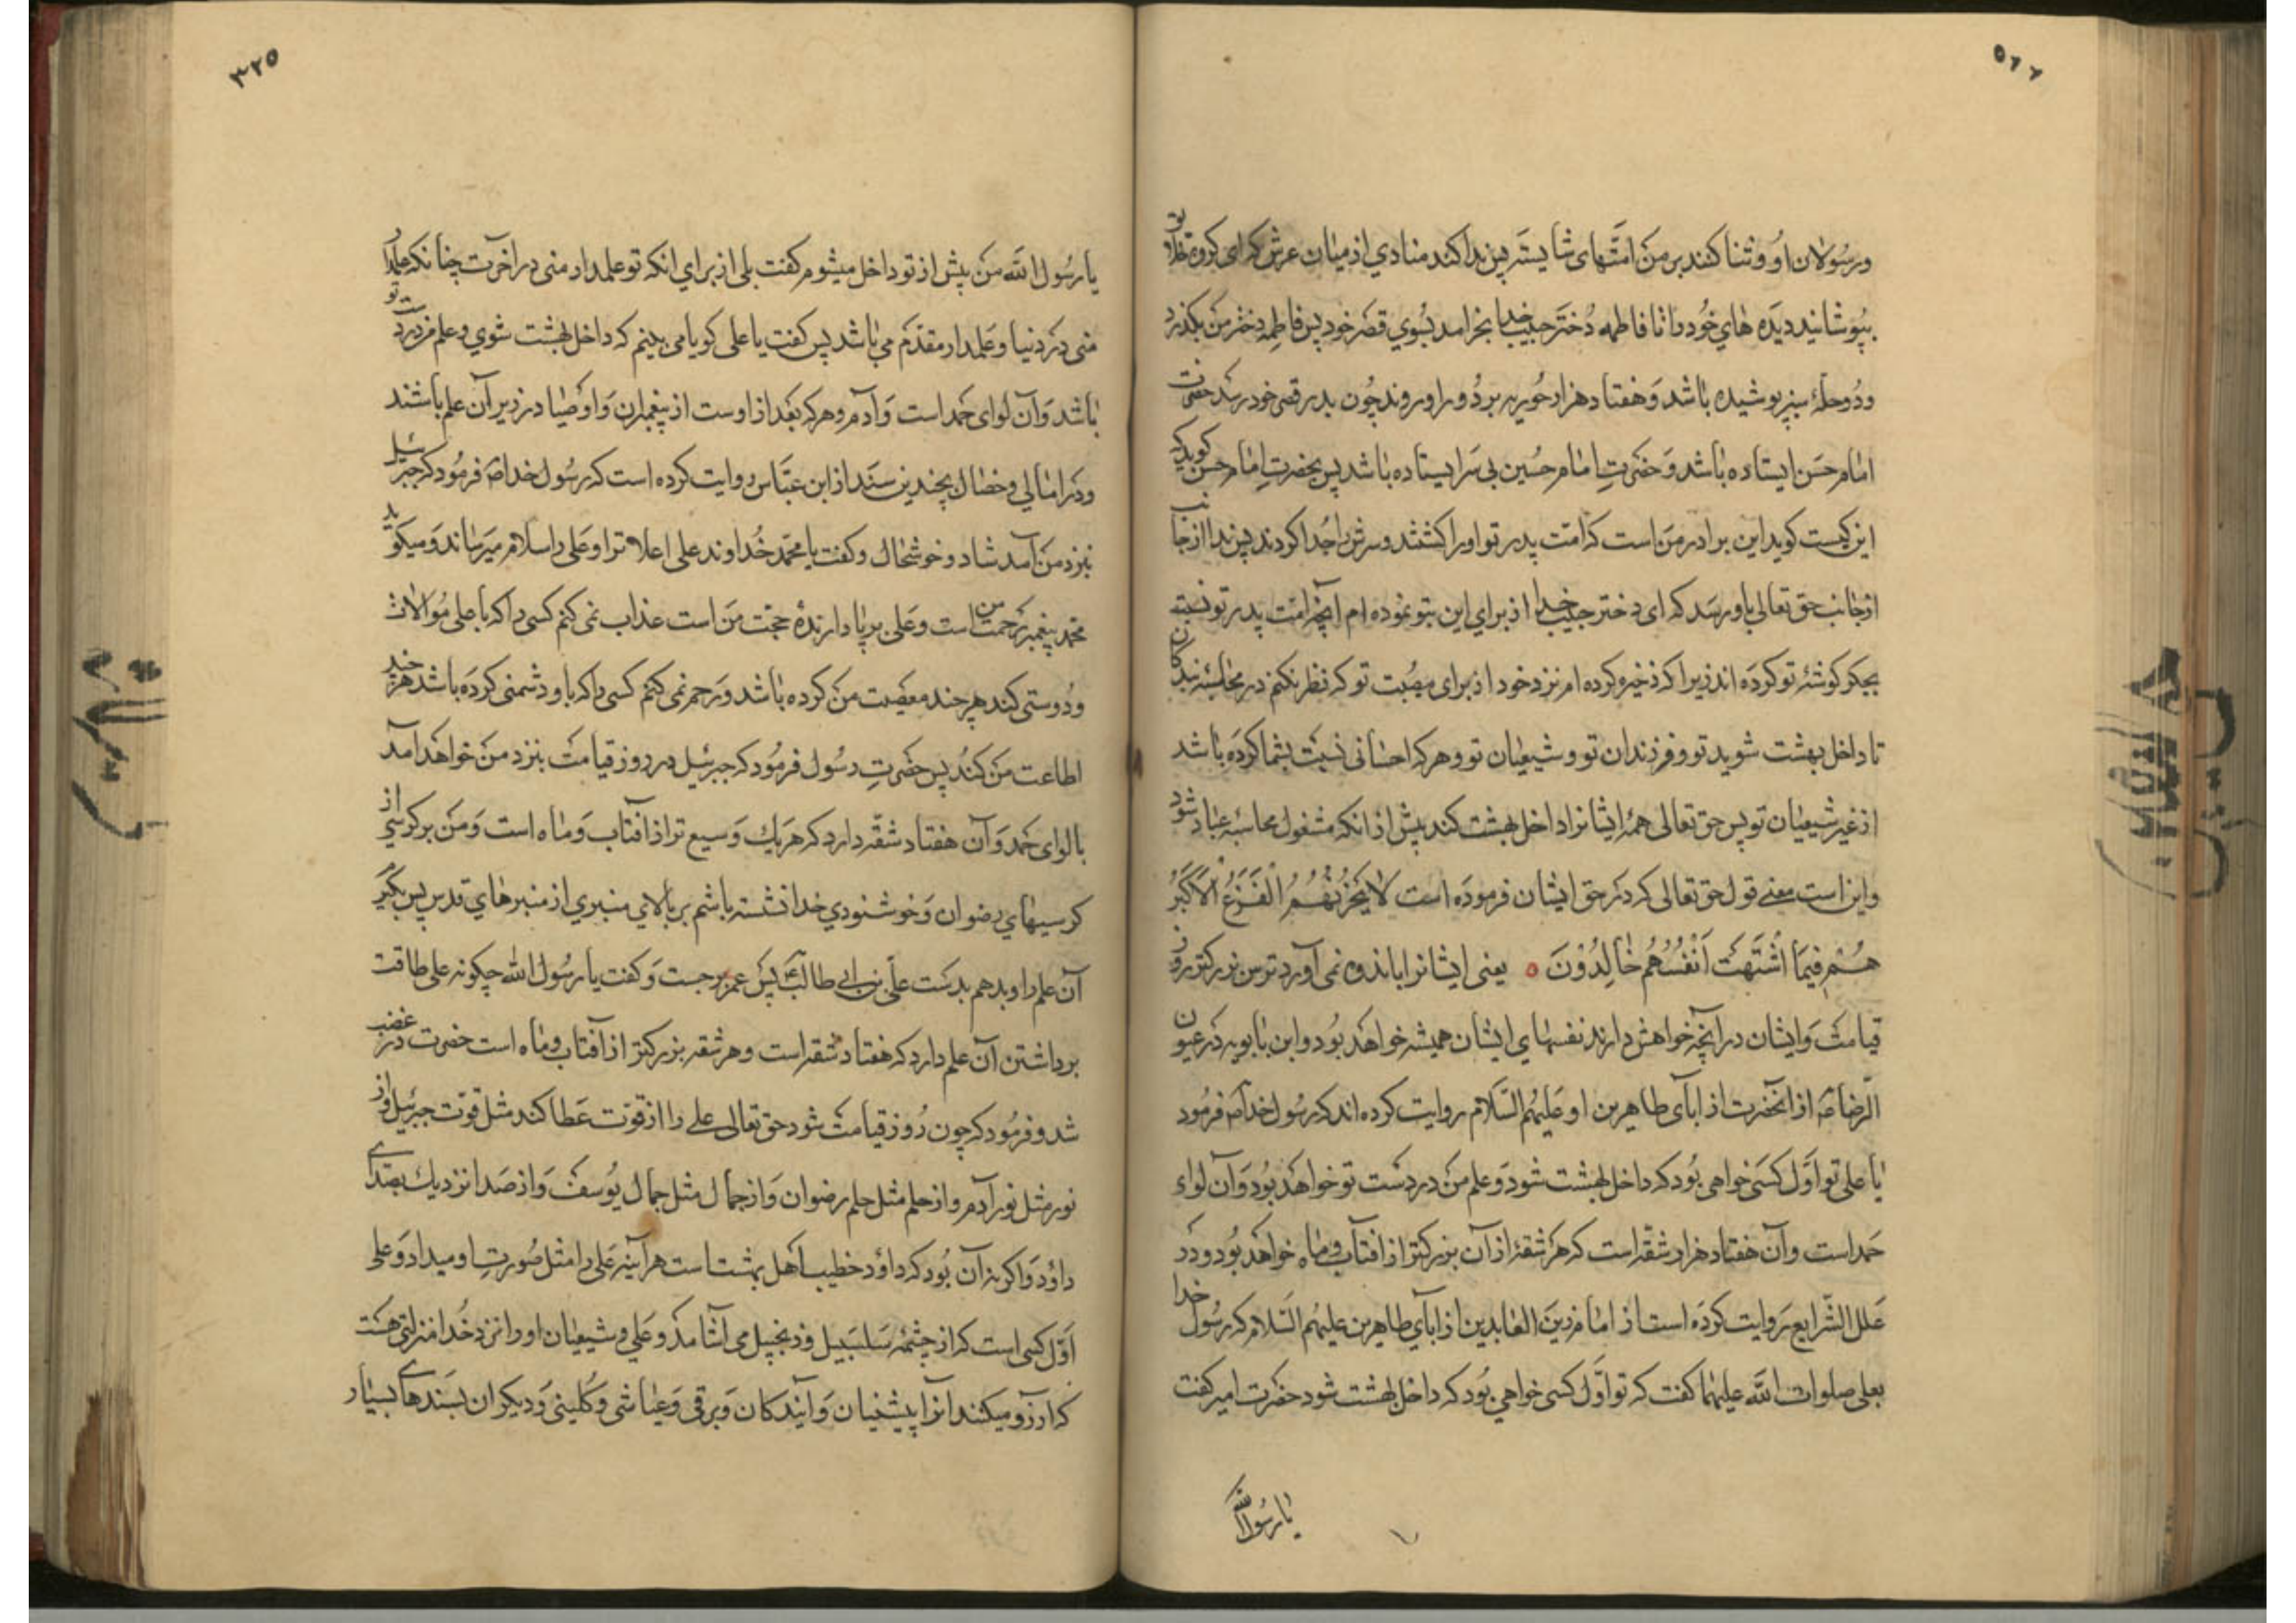 ۵۲۲
ورسولان او و ثنا کنند بر من امتهای شایسته پس ندا کند منادی از میان عرش که ای گروه خلایق
بپوشانید دیده های خود را تا فاطمه دختر حبیب خدا بخرامد بسوی قصر خود پس فاطمه دختر من بگذرد
ودو حلهٔ سبز پوشیده باشد و هفتاد هزار حوریه بر دور او روند چون بدر قصر خود رسد حضرت
امام حسن ایستاده باشد و حضرت امام حسین بی سر ایستاده باشد پس بحضرت امام حسن گوید که
این کیست گوید این برادر من است که امت پدر تو او را کشتند و سرش را جدا کردند پس ندا از جانب
از جانب حق تعالی باو رسد که ای دختر حبیب خدا از برای این بتو نموده ام آنچه امت پدر تو نسبت
بجگر گوشهٔ تو کرده اند زیرا که ذخیره کرده ام نزد خود از برای مصیبت تو که نظر نکنم در محاسبهٔ بندگان
تا داخل بهشت شوید تو و فرزندان تو و شیعیان تو و هرکه احسانی نسبت بشما کرده باشد
از غیر شیعیان تو پس حق تعالی همهٔ ایشانرا داخل بهشت کند پیش از انکه مشغول محاسبهٔ عباد شود
واین است معنی قول حق تعالی که در حق ایشان فرموده است لا یَحْزُنُهُمُ الْفَزَعُ الْاَکْبَرُ
هُمْ فِیمَا اشْتَهَتْ اَنْفُسُهُمْ خَالِدُوْنَ ه یعنی ایشانرا باندوه نمی آورد ترس بزرگتر روز
قیامت و ایشان در آنچه خواهش دارند نفسهای ایشان همیشه خواهند بود و ابن بابویه در عیون
الرضاؑ از آنحضرت از ابآی طاهرین او علیهم السلام روایت کرده اند که رسول خداؐ فرمود
یا علی تو اول کسی خواهی بود که داخل بهشت شود و علم من در دست تو خواهد بود و آن لواء
حمد است وآن هفتاد هزار شقه است که هر شقهٔ از آن بزرگتر از افتاب و ماه خواهد بود و در
علل الشرایع روایت کرده است از امام زین العابدین از ابآی طاهرین علیهم السلام که رسول خدا
بعلی صلوات الله علیهما گفت که تو اول کسی خواهی بود که داخل بهشت شود حضرت امیر گفت
یا رسول الله
۳۲۵
یا رسول الله من پیش از تو داخل میشوم گفت بلی از برای انکه تو علمدار منی در اخرت چنانکه علمدار
منی در دنیا و علمدار مقدم می باشد پس گفت یا علی گویا می بینم که داخل بهشت شوی و علم من در دست تو
باشد و آن لوای حمد است و آدم و هرکه بعد از اوست از پیغمبران و اوصیا در زیر آن علم باشند
ودر امالی و خصال بچندین سند از ابن عباس روایت کرده است که رسول خداؐ فرمود که جبرئیل
بنزد من آمد شاد و خوشحال و گفت یا محمد خداوند علی اعلا ترا و علی را سلام میرساند و میگوید
محمد پیغمبر رحمت من است و علی بر پا دارندهٔ حجت من است عذاب نمی کنم کسی را که با علی موالات
ودوستی کند هر چند معصیت من کرده باشد و رحم نمی کنم کسی را که با او دشمنی کرده باشد هر چند
اطاعت من کند پس حضرت رسول فرمود که جبرئیل در روز قیامت بنزد من خواهد آمد
با لوای حمد و آن هفتاد شقه دارد که هر یک وسیع تر از افتاب و ماه است و من بر کرسی از
کرسیهای رضوان و خوشنودی خدا نشسته باشم بر بالای منبری از منبرهای قدس پس بگیرم
آن علم را و بدهم بدست علی بن ابی طالبؑ پس عمر برجست و گفت یا رسول الله چگونه علی طاقت
برداشتن آن علم دارد که هفتاد شقه است و هر شقه بزرگتر از آفتاب و ماه است حضرت در غضب
شد و فرمود که چون روز قیامت شود حق تعالی علی را از قوت عطا کند مثل قوت جبرئیل و از
نور مثل نور آدم و از حلم مثل حلم رضوان و از جمال مثل جمال یوسف و از صدا نزدیک بصدای
داؤد و اگر نه آن بود که داؤد خطیب اهل بهشت است هر آینه علی را مثل صورت او میداد و علی
اول کسی است که از چشمهٔ سلسبیل و زنجبیل می آشامد و علی و شیعیان او را نزد خدا منزلتی هست
که آرزو میکنند آنرا پیشینیان و آیندکان و برقی و عیاشی و کلینی و دیگران بسندهای بسیار